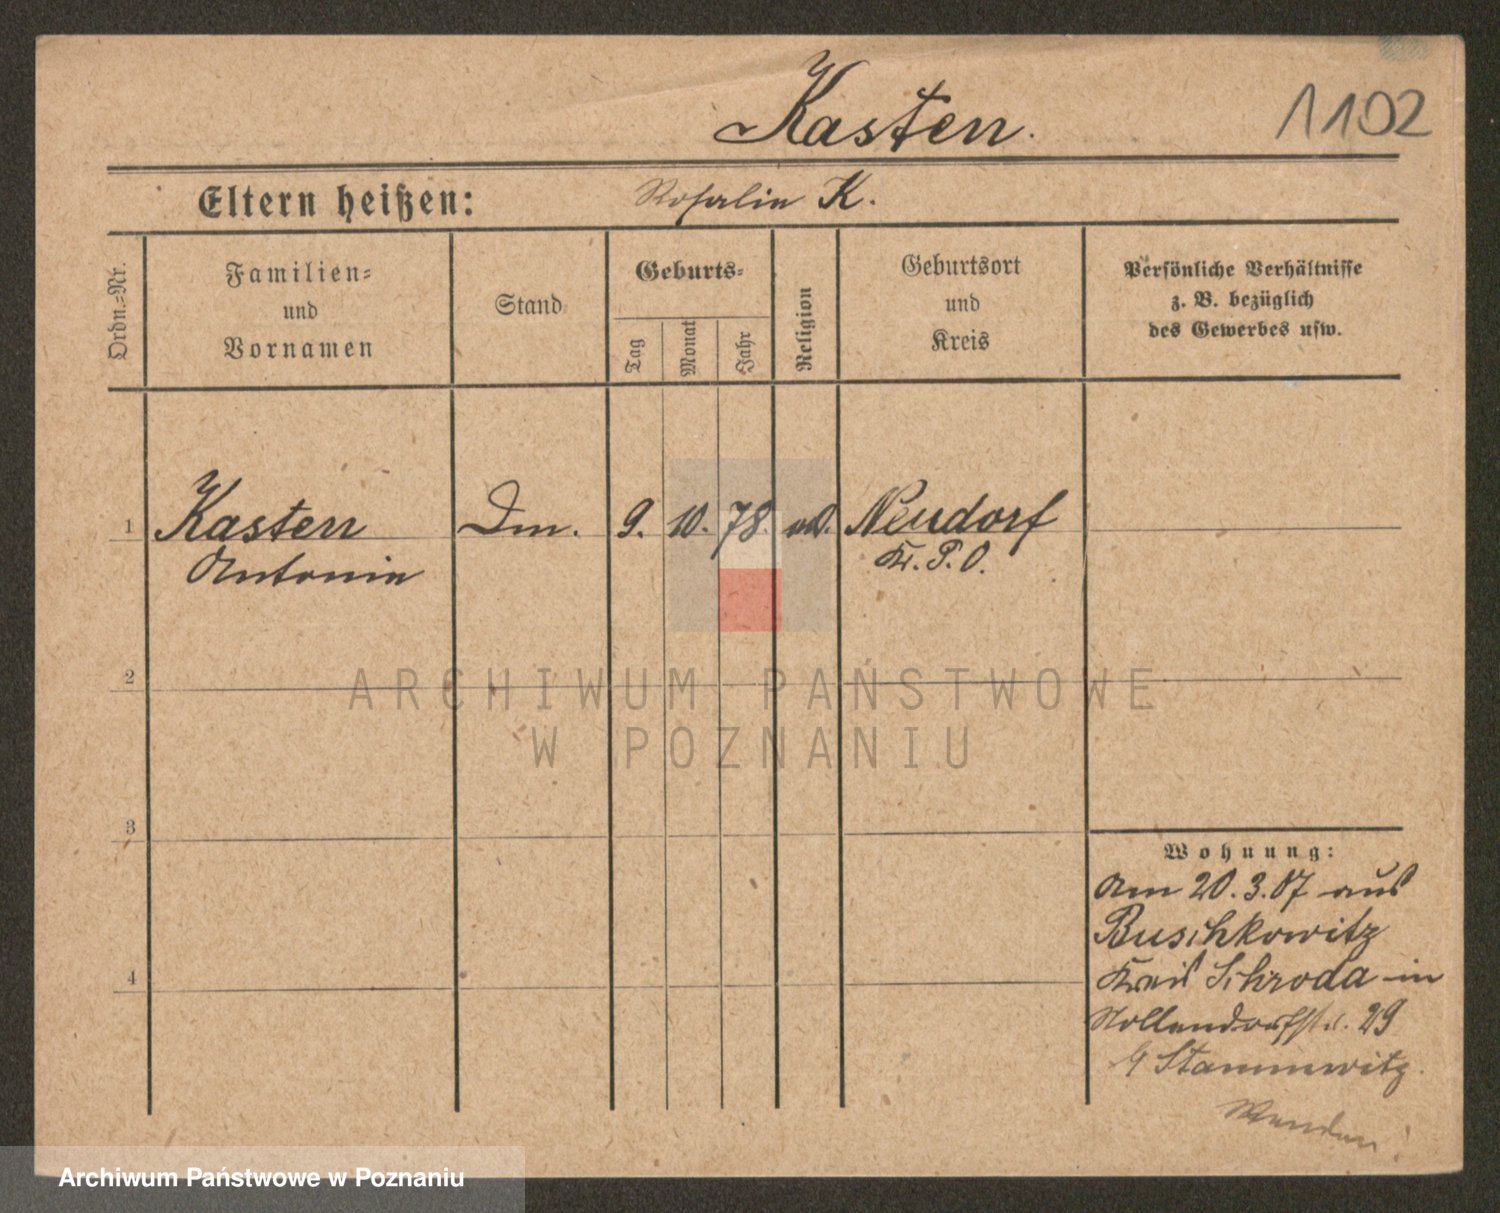 Kasten.
1102
Eltern heißen: Rosalie K.
Ordn.=Nr.
Familien=
und
Vornamen
Stand
Geburts=
Tag
Monat
Jahr
Religion
Geburtsort
und
Kreis
Persönliche Verhältnisse
z. B. bezüglich
des Gewerbes usw.
1 Kasten Dm. 9. 10. 78. Neudorf
Antonie Kr. P. O.
2
ARCHIWUM PAŃSTWOWE
W POZNANIU
3
Wohnung:
Am 20.3.07 aus
Buschkowitz
4
Kreis Schroda in
Nollendorfstr. 29
b/ Stammwitz.
Wenden!
Archiwum Państwowe w Poznaniu